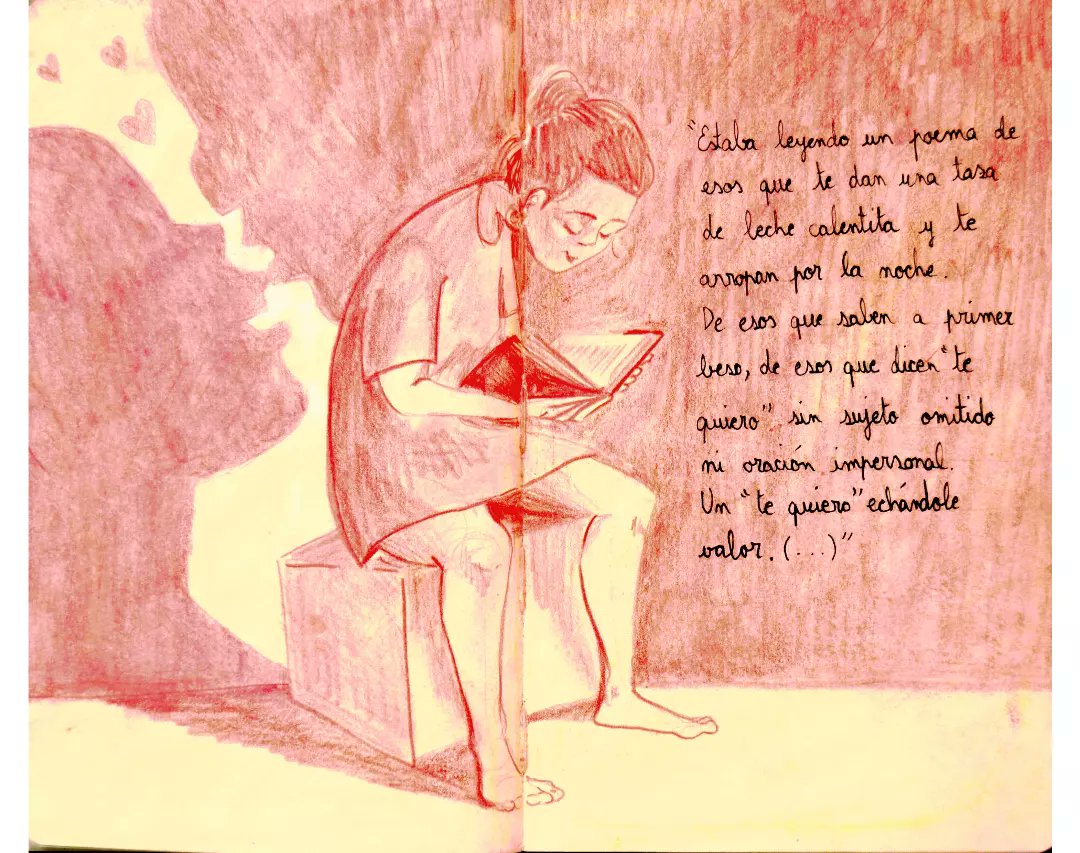 "Estaba leyendo un poema de
esos que te dan una tasa
de leche calentita y te
arropan por la noche.
De esos que saben a primer
beso, de esos que dicen "te
quiero" sin sujeto omitido
ni oración impersonal.
Un "te quiero" echándole
valor. (...)"